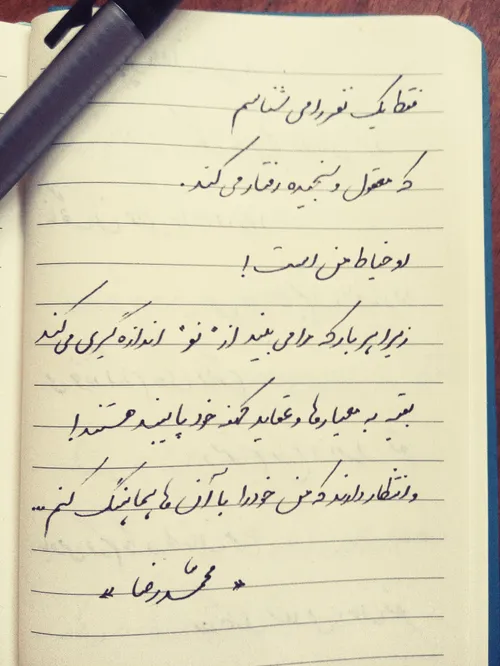 فقط یک نفر را می شناسم
که معقول و سنجیده رفتار می کند.
او خیاط من است!
زیرا هر بار که مرا می بیند از "نو" اندازه گیری می کند
بقیه به معیارها و عقاید کهنه خود پایبند هستند!
و انتظار دارند که من خود را با آن ها هماهنگ کنم...
« محمدرضا »